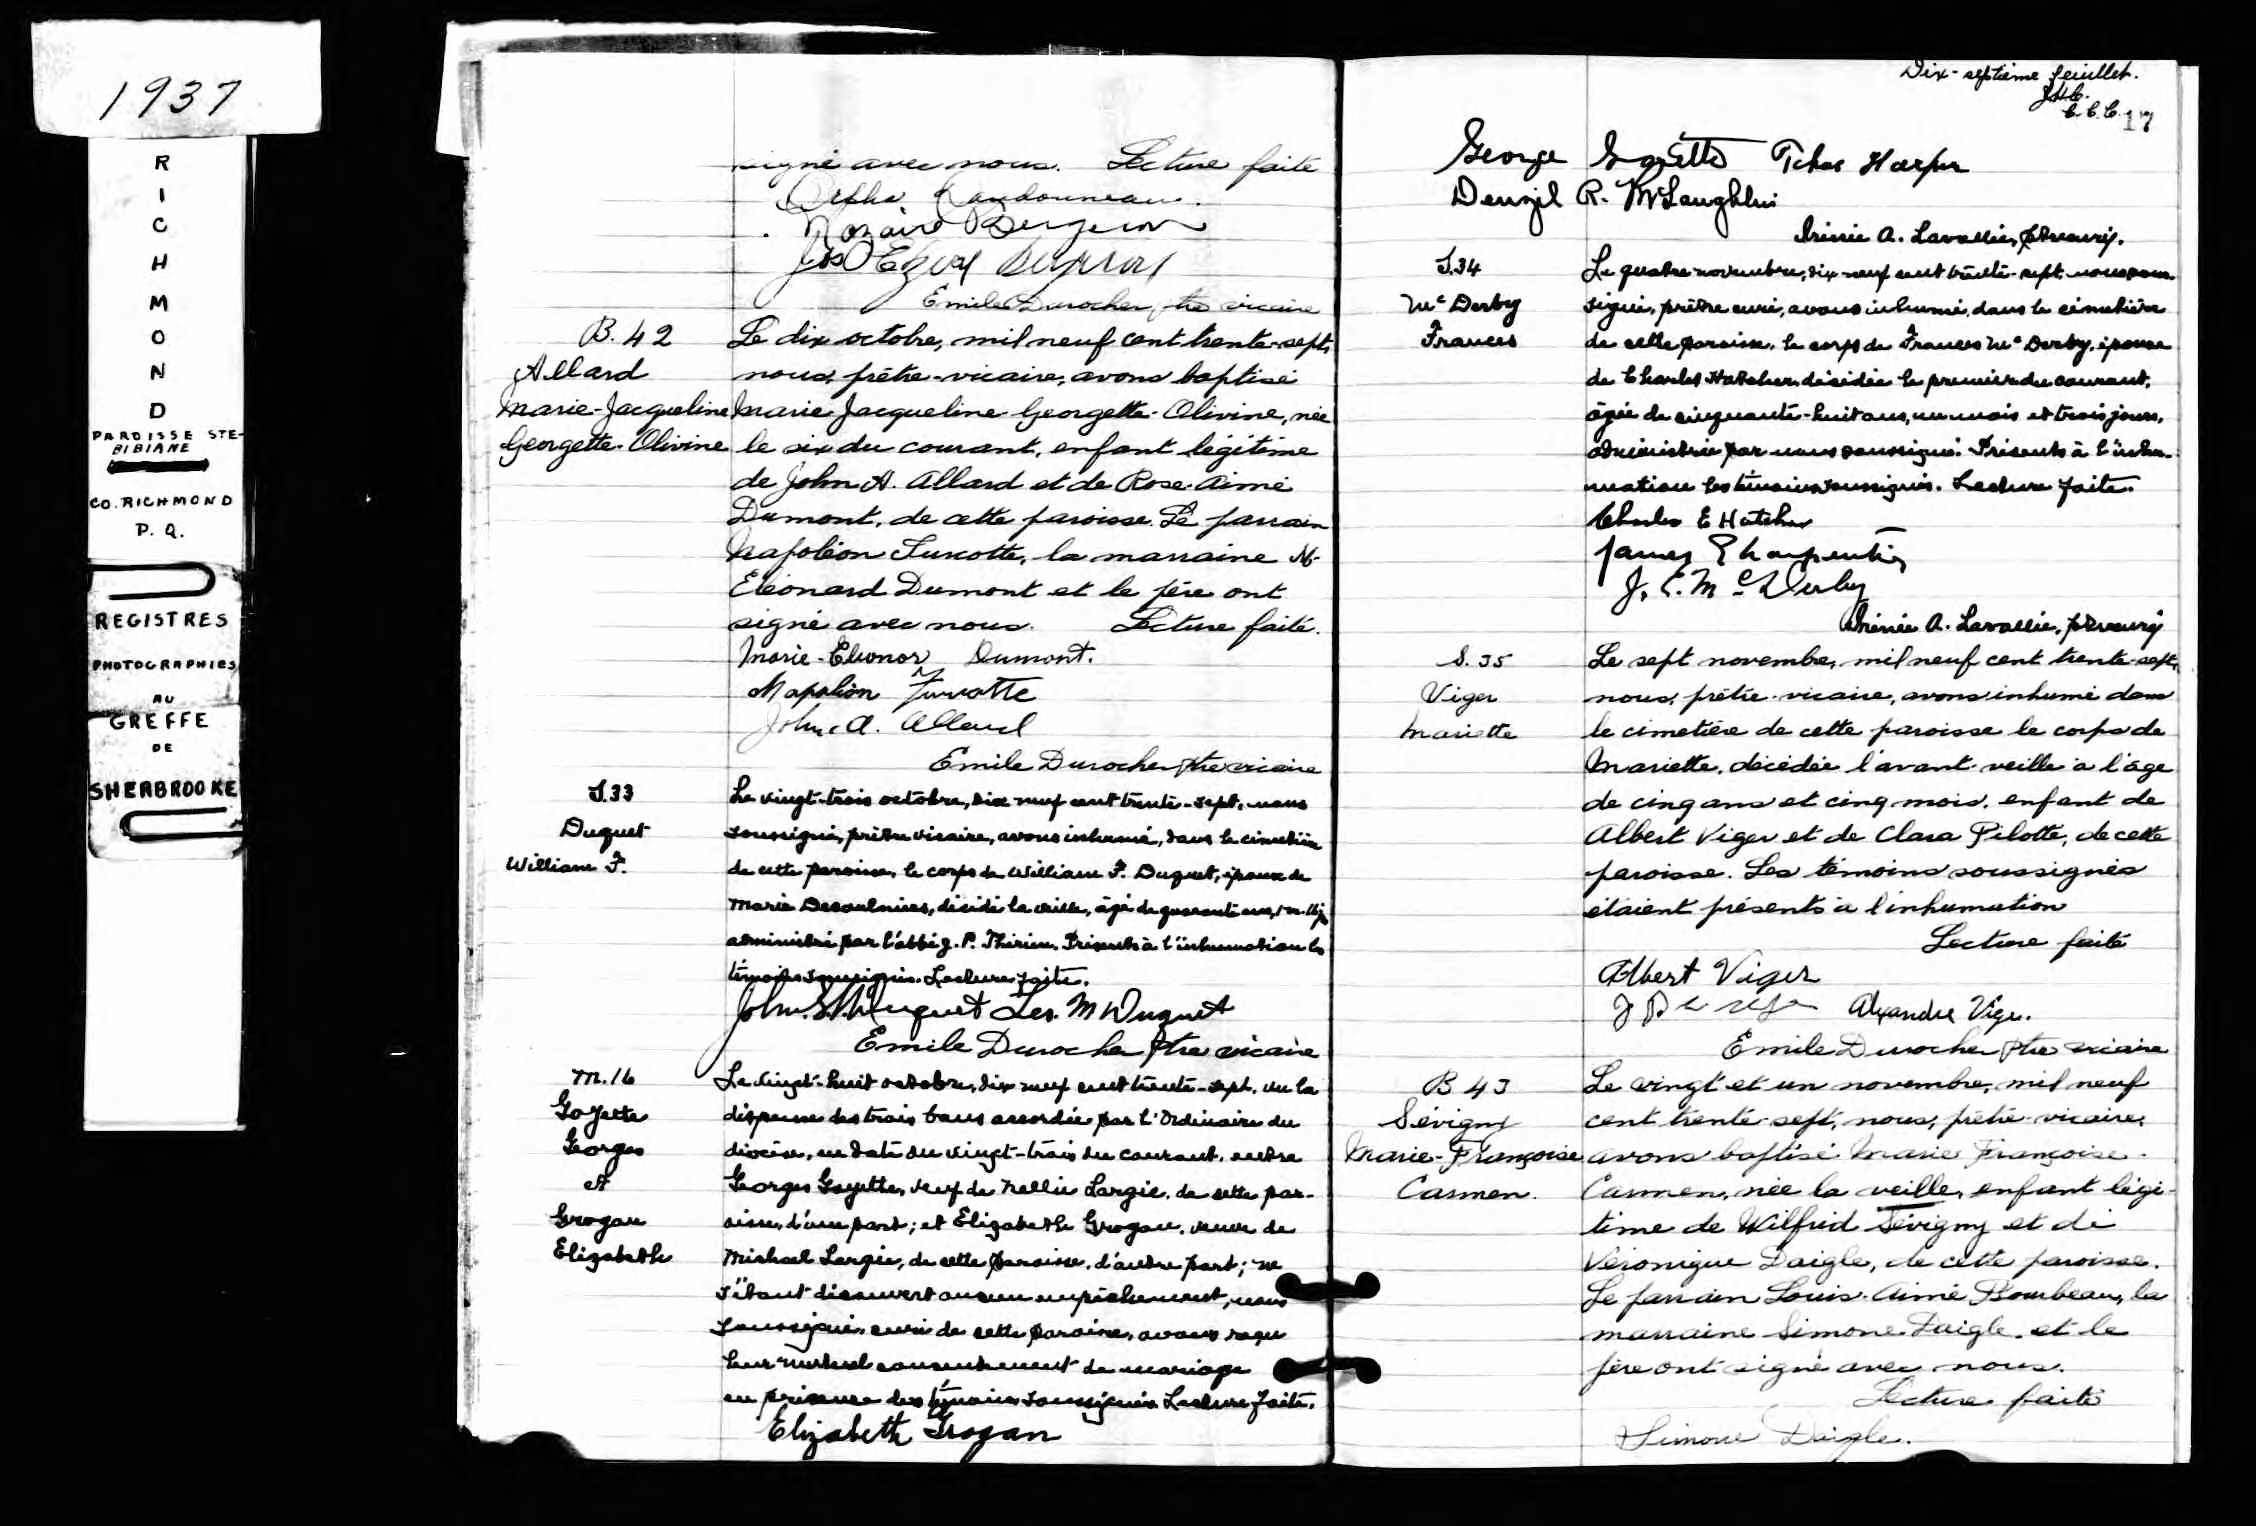 1937
R
I
C
H
M
O
N
D
PAROISSE STE-
BIBIANE
CO. RICHMOND
P. Q.
REGISTRES
PHOTOGRAPHIES
AU
GREFFE
DE
SHERBROOKE
signé avec nous. Lecture faite
Nazaire Bergeron
Emile Durocher ptre vicaire
B. 42
Allard
Marie-Jacqueline
Georgette-Olivine
Le dix octobre, mil neuf cent trente-sept,
nous, prêtre-vicaire, avons baptisé
Marie Jacqueline Georgette-Olivine, née
le six du courant, enfant légitime
de John A. Allard et de Rose-Aimé
Dumont, de cette paroisse. Le parrain
Napoléon Turcotte, la marraine M-
Eléonard Dumont et le père ont
signé avec nous. Lecture faite.
Marie-Eleonor Dumont.
Napoléon Turcotte
John A. Allard
Emile Durocher ptre vicaire
S.33
Duquet
William F.
Le vingt-trois octobre, dix neuf cent trente-sept, nous
soussigné, prêtre vicaire, avons inhumé, dans le cimetière
de cette paroisse, le corps de William F. Duquet, époux de
Marie Desaulniers, décédé la veille, âgé de quarante ans,
administré par l'abbé J. P. Thérien. Présents à l'inhumation les
témoins soussignés. Lecture faite.
John. S. Duquet Leo. M Duquet
Emile Durocher ptre vicaire
M. 16
Goyette
Georges
et
Grogan
Elizabeth
Le vingt-huit octobre, dix neuf cent trente-sept, vu la
dispense des trois bans accordée par l'Ordinaire du
diocèse, en date du vingt-trois du courant, entre
Georges Goyette, veuf de Nellie Largie, de cette par-
oisse, d'une part; et Elizabeth Grogan, veuve de
Michael Largie, de cette paroisse, d'autre part; ne
s'étant découvert aucun empêchement, nous
soussigné, curé de cette paroisse, avons reçu
leur mutuel consentement de mariage
en présence des témoins soussignés. Lecture faite.
Elizabeth Grogan
Dix-septième feuillet.
C. C. C. 17
George Goyette Harper
Denzil R. McLaughlin
Irénée A. Lavallée, ptre curé.
S.34
Mc Derby
Frances
Le quatre novembre, dix-neuf cent trente-sept, nous sous-
signé, prêtre curé, avons inhumé, dans le cimetière
de cette paroisse, le corps de Frances Mc Derby, épouse
de Charles Hatcher, décédée le premier du courant,
âgée de cinquante-huit ans, un mois et trois jours,
administrée par nous soussigné. Présents à l'inhu-
mation les témoins soussignés. Lecture faite.
Charles E Hatcher
James Charpentier
J. E. Mc Derby
Irénée A. Lavallée, ptre curé
S. 35
Viger
Mariette
Le sept novembre, mil neuf cent trente-sept,
nous, prêtre-vicaire, avons inhumé dans
le cimetière de cette paroisse le corps de
Mariette, décédée l'avant-veille à l'âge
de cinq ans et cinq mois, enfant de
Albert Viger et de Clara Pilotte, de cette
paroisse. Les témoins soussignés
étaient présents à l'inhumation
Lecture faite
Albert Viger
Alexandre Viger.
Emile Durocher ptre vicaire
B 43
Sévigny
Marie-Françoise
Carmen.
Le vingt et un novembre, mil neuf
cent trente-sept, nous, prêtre-vicaire,
avons baptisé Marie Françoise-
Carmen, née la veille, enfant légi-
time de Wilfrid Sévigny et de
Véronique Daigle, de cette paroisse.
Le parrain Louis-Aimé Plombeau, la
marraine Simone Daigle et le
père ont signé avec nous.
Lecture faite
Simone Daigle.